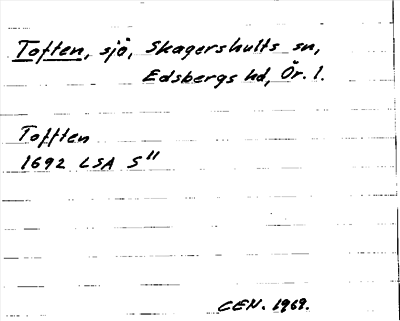 Toften, sjö, Skagershults sn,
Edsbergs hd, Ör. l.
Tofften
1692 LSA S"
CEN. 1969.